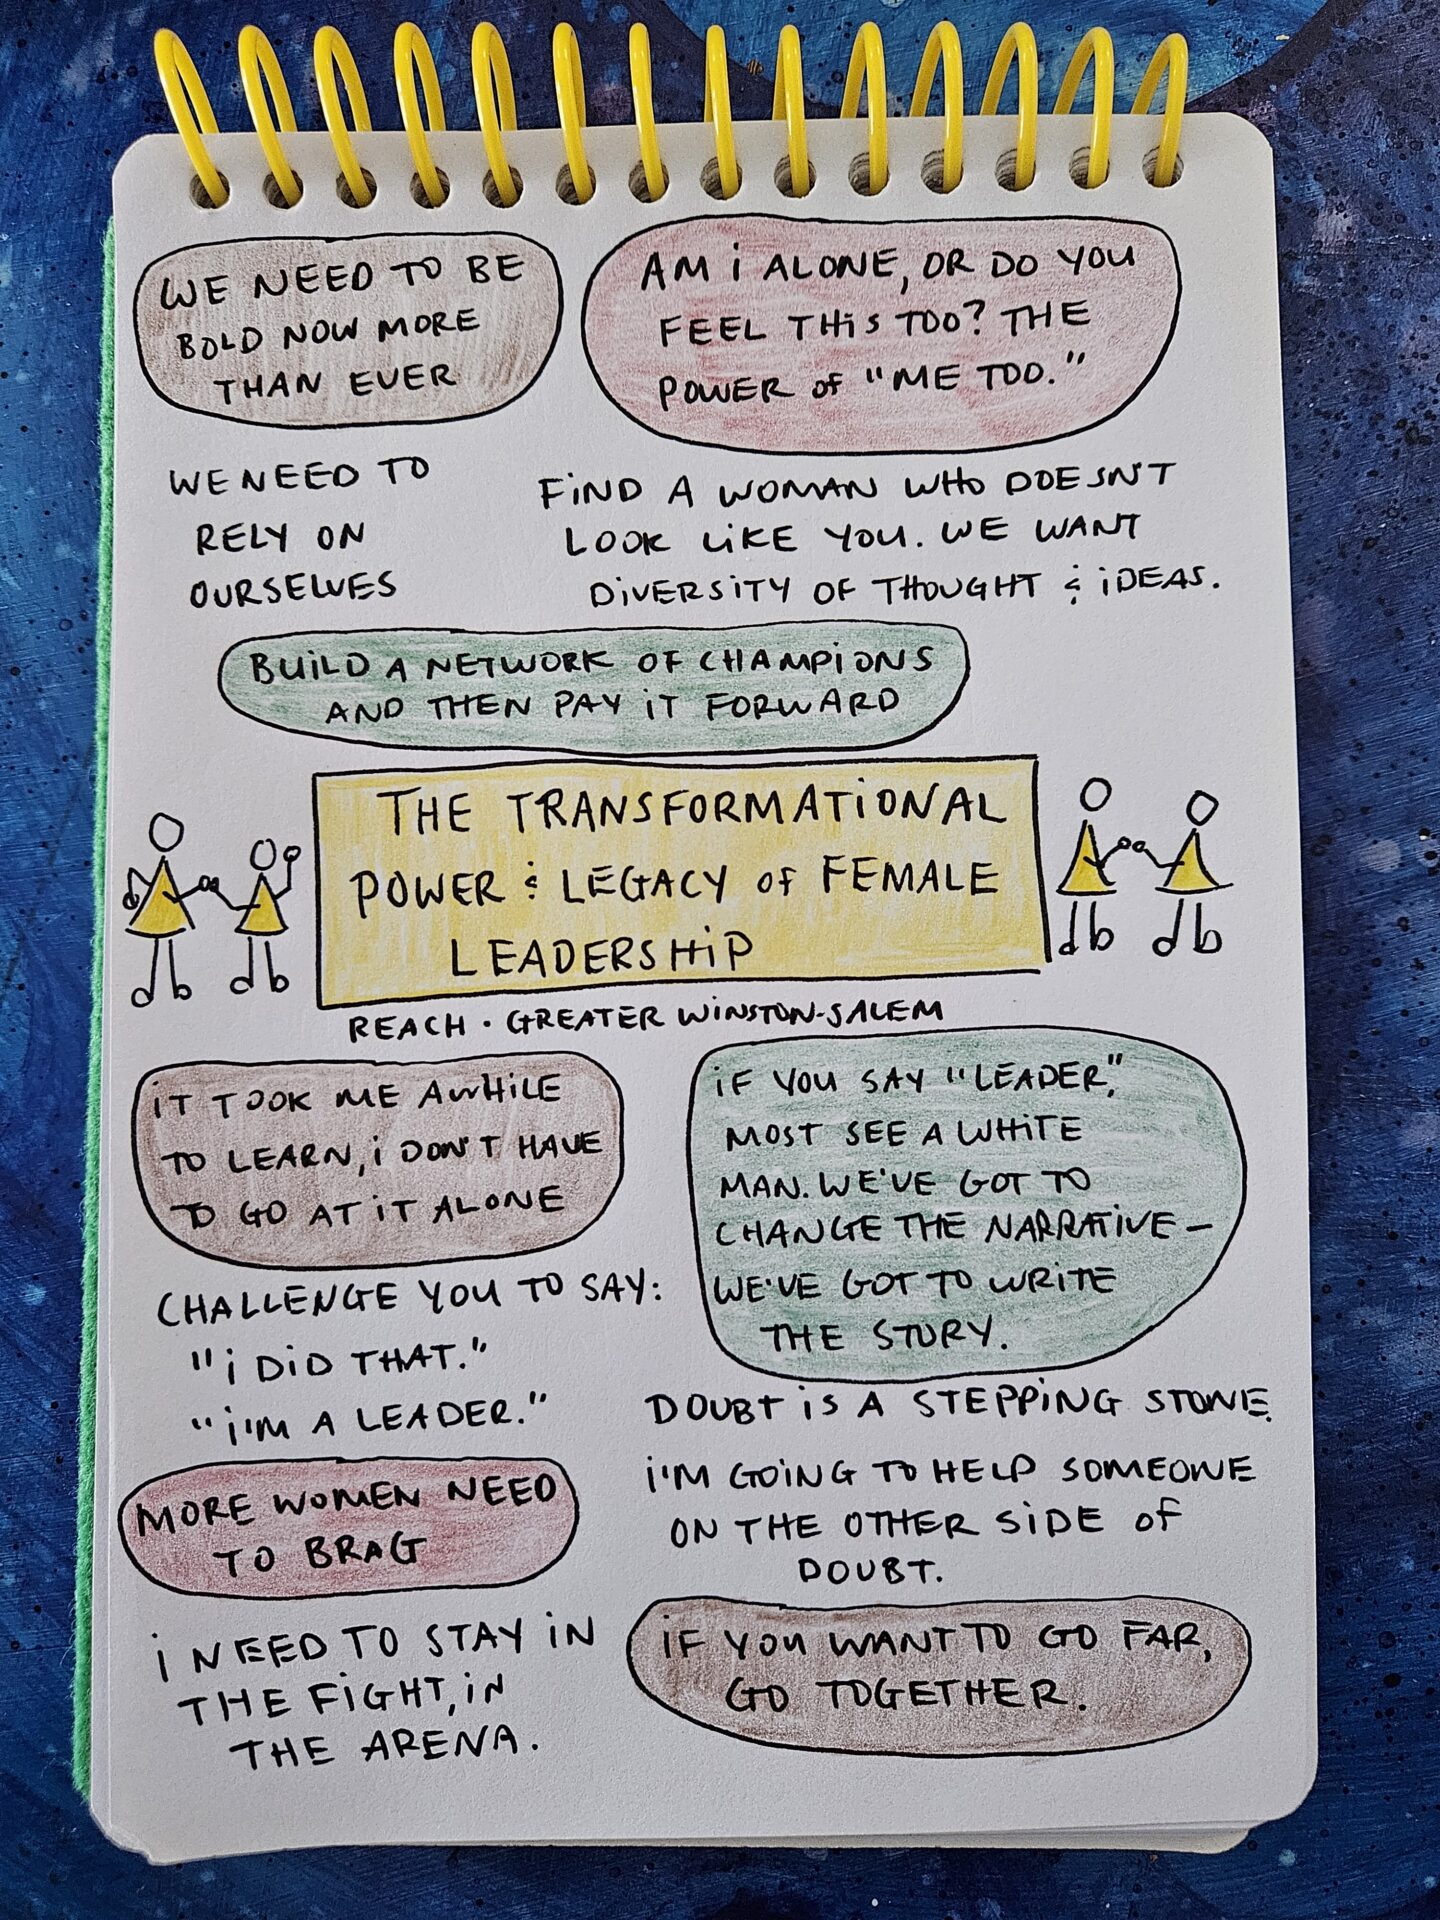 WE NEED TO BE
BOLD NOW MORE
THAN EVER
AM i ALONE, OR DO YOU
FEEL THIS TOO? THE
POWER of "ME TOO."
WE NEED TO
RELY ON
OURSELVES
FIND A WOMAN WHO DOESN'T
LOOK LIKE YOU. WE WANT
DIVERSITY OF THOUGHT & IDEAS.
BUILD A NETWORK OF CHAMPIONS
AND THEN PAY IT FORWARD
THE TRANSFORMATIONAL
POWER & LEGACY of FEMALE
LEADERSHIP
REACH · GREATER WINSTON-SALEM
IT TOOK ME AWHILE
TO LEARN, i DON'T HAVE
TO GO AT IT ALONE
IF YOU SAY "LEADER,"
MOST SEE A WHITE
MAN. WE'VE GOT TO
CHANGE THE NARRATIVE –
WE'VE GOT TO WRITE
THE STORY.
CHALLENGE YOU TO SAY:
"i DID THAT."
"i'M A LEADER."
DOUBT IS A STEPPING STONE.
i'M GOING TO HELP SOMEONE
ON THE OTHER SIDE of
DOUBT.
MORE WOMEN NEED
TO BRAG
i NEED TO STAY IN
THE FIGHT, IN
THE ARENA.
IF YOU WANT TO GO FAR,
GO TOGETHER.